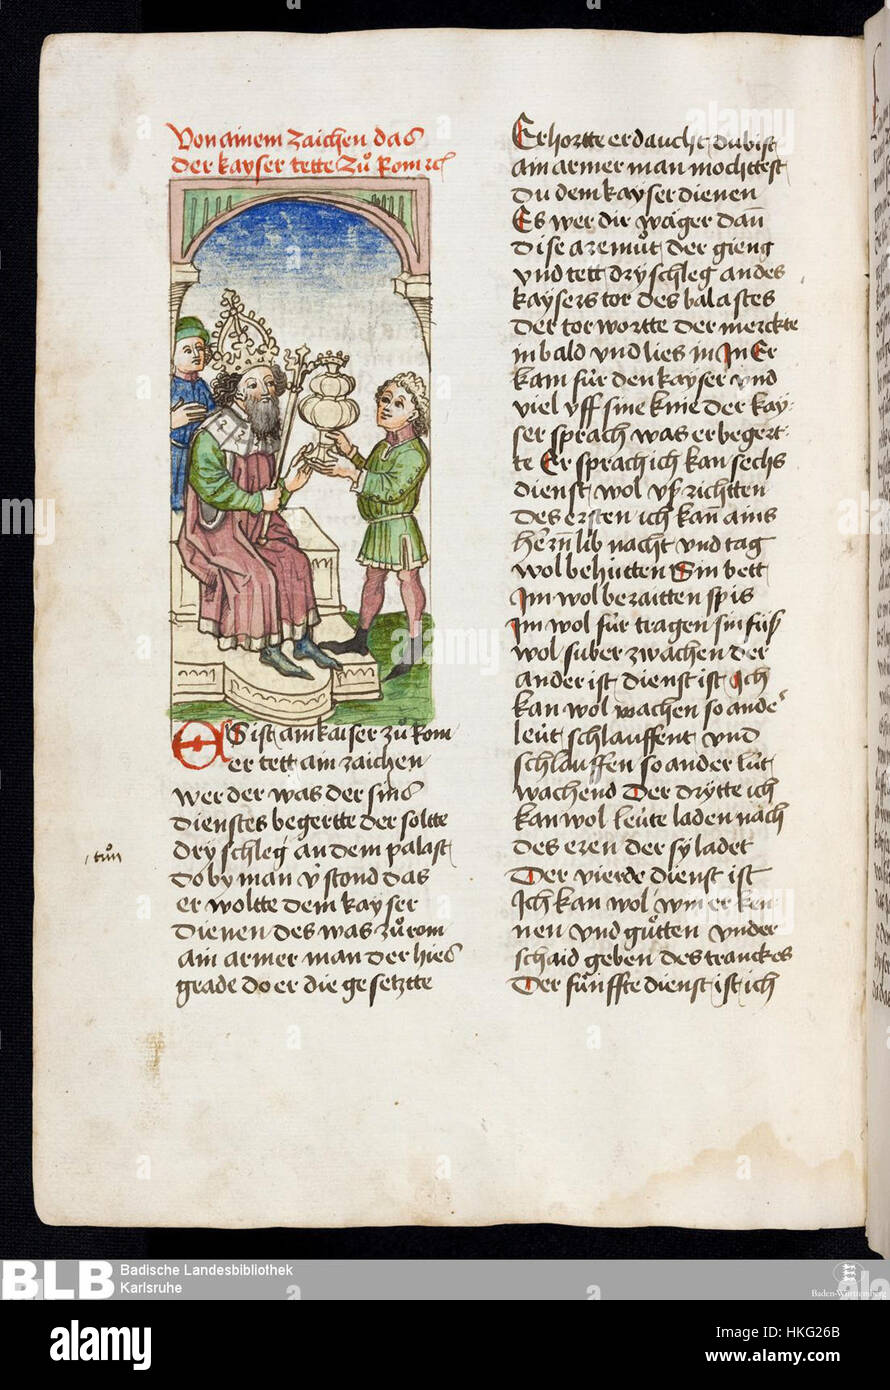 Von ainem zaichen das
der kayser tette zů Rom ꝛc
ES ist ain kaiser zů Rom
er tett ain zaichen
wer der was der sins
dienstes begertte der soltte
dry schleg an dem palast
do by man v̊stond das
er woltte dem kayser
dienen des was zů rom
ain armer man der hies
grade do er die gesetztte
, tůn
Erhortte er daucht du bist
ain armer man mochttest
du dem kayser dienen
Es wer dir wäger dan̄
dise aremůt der gieng
vnd tett dry schleg an des
kaysers tor des balastes
der torwortte der merckte
in bald vnd lies in In Er
kam fůr den kayser vnd
viel vff sine knie der kay-
ser sprach was er begert-
te Er sprach ich kan sechs
dienst wol vß richtten
des ersten ich kan̄ ains
herrn̄ lib nacht vnd tag
wol behůtten Sin bett
Im wol beraitten spis
Im wol fůr tragen sin fůß
wol suber zwachen der
ander ist dienst ist Ich
kan wol wachen so ander
leůt schlauffent vnd
schlauffen so ander lůt
wachend Der drytte ich
kan wol leůte laden nach
des eren der sy ladet
Der vierde dienst ist
Ich kan wol win erken-
nen vnd gůtten vnder
schaid geben des tranckes
Der fůnffte dienst ist ich
BLB
Badische Landesbibliothek
Karlsruhe
Baden-Württemberg
alamy
Image ID: HKG26B
www.alamy.com